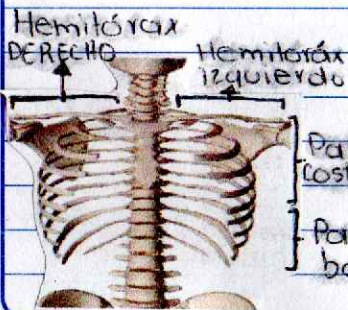 Hemitórax
DERECHO
Hemitoráx
izquierdo
Pa
Cost
Pa
ba